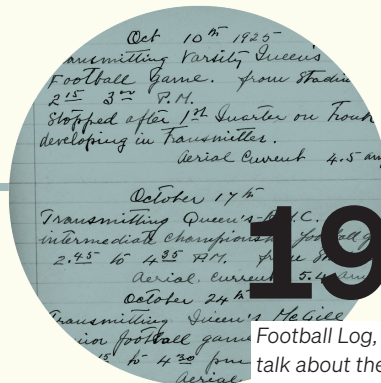 Oct 10th 1925
Transmitting Varsity Queen's
Football Game. from Stadiu
2 15 3 00 P.M.
Stopped after 1st Quarter on Troub
developing in Transmitter.
Aerial Current 4.5 am
October 17th
Transmitting Queen's-R.M.C.
intermediate championship football g
2.45 to 4 35 P.M. from
Aerial. current 5.4 am
October 24th
Transmitting Queen's McGill
football game
15 to 4 30 pm
Aerial
19
Football Log,
talk about the